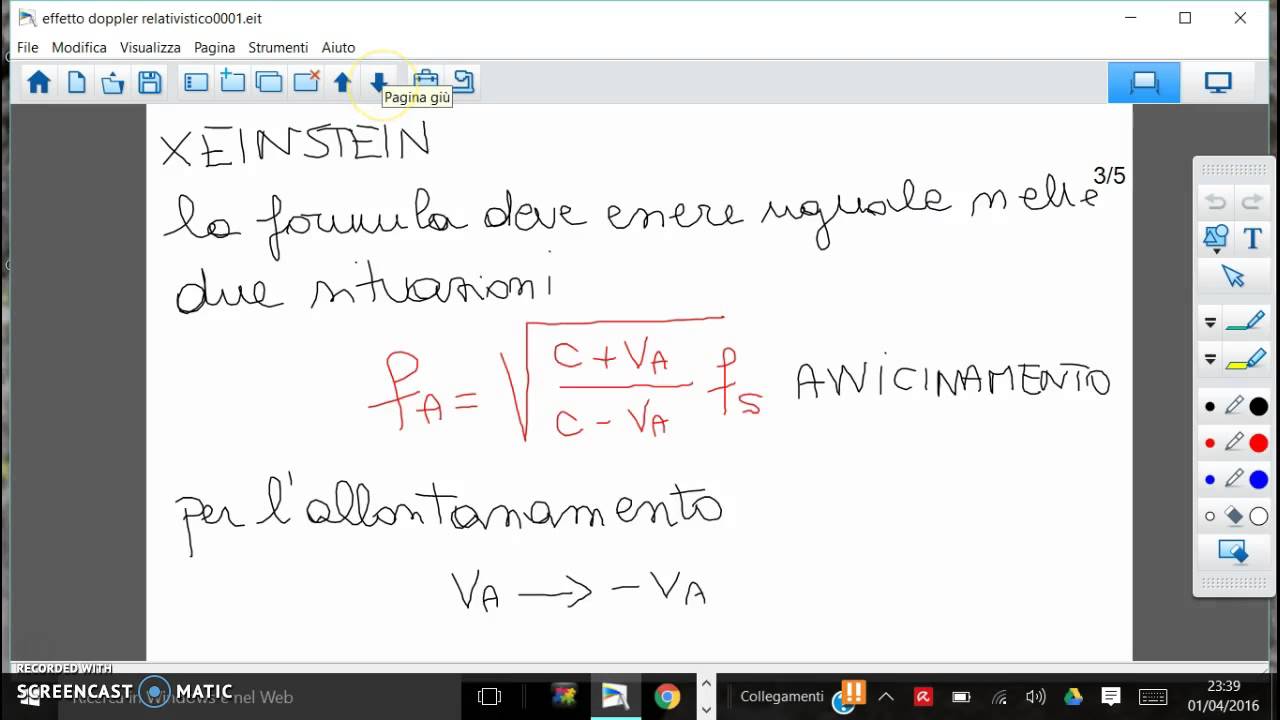 effetto doppler relativistico0001.eit
File Modifica Visualizza Pagina Strumenti Aiuto
Pagina giù
X EINSTEIN
3/5
la formula deve essere uguale nelle
due situazioni
f_A = √((C + V_A)/(C - V_A)) f_S AVVICINAMENTO
per l'allontanamento
V_A → - V_A
RECORDED WITH
SCREENCAST MATIC
Ricerca in Windows e nel Web
Collegamenti
23:39
01/04/2016